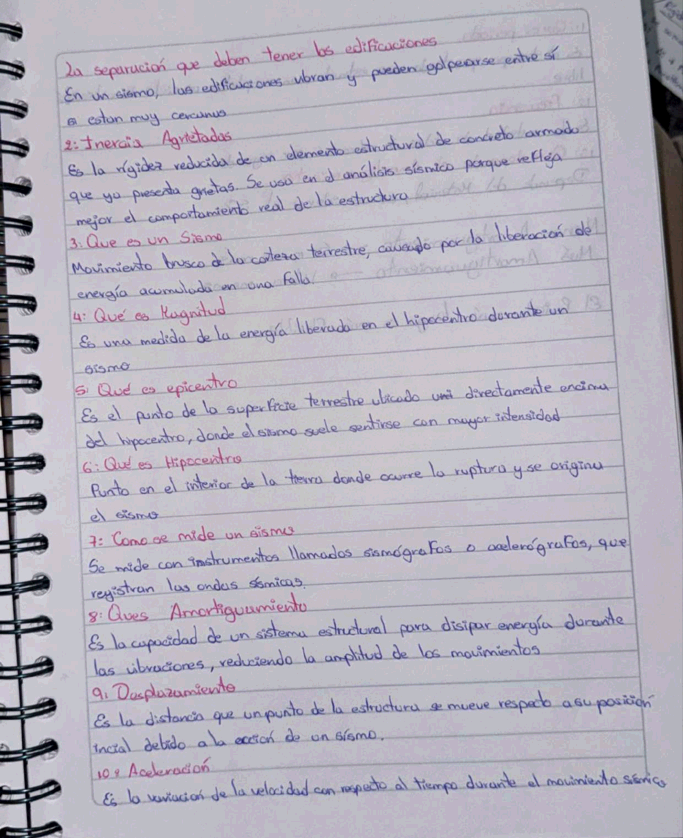 La separación que deben tener los edificaciones
En un sismo, las edificaciones vibran y pueden golpearse entre sí
estan muy cercanas
2: Inercia Agrietadas
Es la rígidez reducida de un elemento estructural de concreto armado
que ya presenta grietas. Se usa en el análisis sísmico porque refleja
mejor el comportamiento real de la estructura
3. Que es un Sismo
Movimiento brusco de la corteza terrestre, causado por la liberación de
energía acumulada en una falla
4: Qué es Magnitud
Es una medida de la energía liberada en el hipocentro durante un
sismo
5. Qué es epicentro
Es el punto de la superficie terrestre ubicado directamente encima
del hipocentro, donde el sismo suele sentirse con mayor intensidad
6: Qué es Hipocentro
Punto en el interior de la tierra donde ocurre la ruptura y se origina
el sismo
7: Como se mide un sismo
Se mide con instrumentos llamados sismógrafos o acelerógrafos, que
registran las ondas sísmicas.
8: Ques Amortiguamiento
Es la capacidad de un sistema estructural para disipar energía durante
las vibraciones, reduciendo la amplitud de los movimientos
9. Dasplazamiento
Es la distancia que un punto de la estructura se mueve respecto a su posición
incial debido a la acción de un sísmo.
10: Aceleración
Es la variación de la velocidad con respecto al tiempo durante el movimiento sísmico